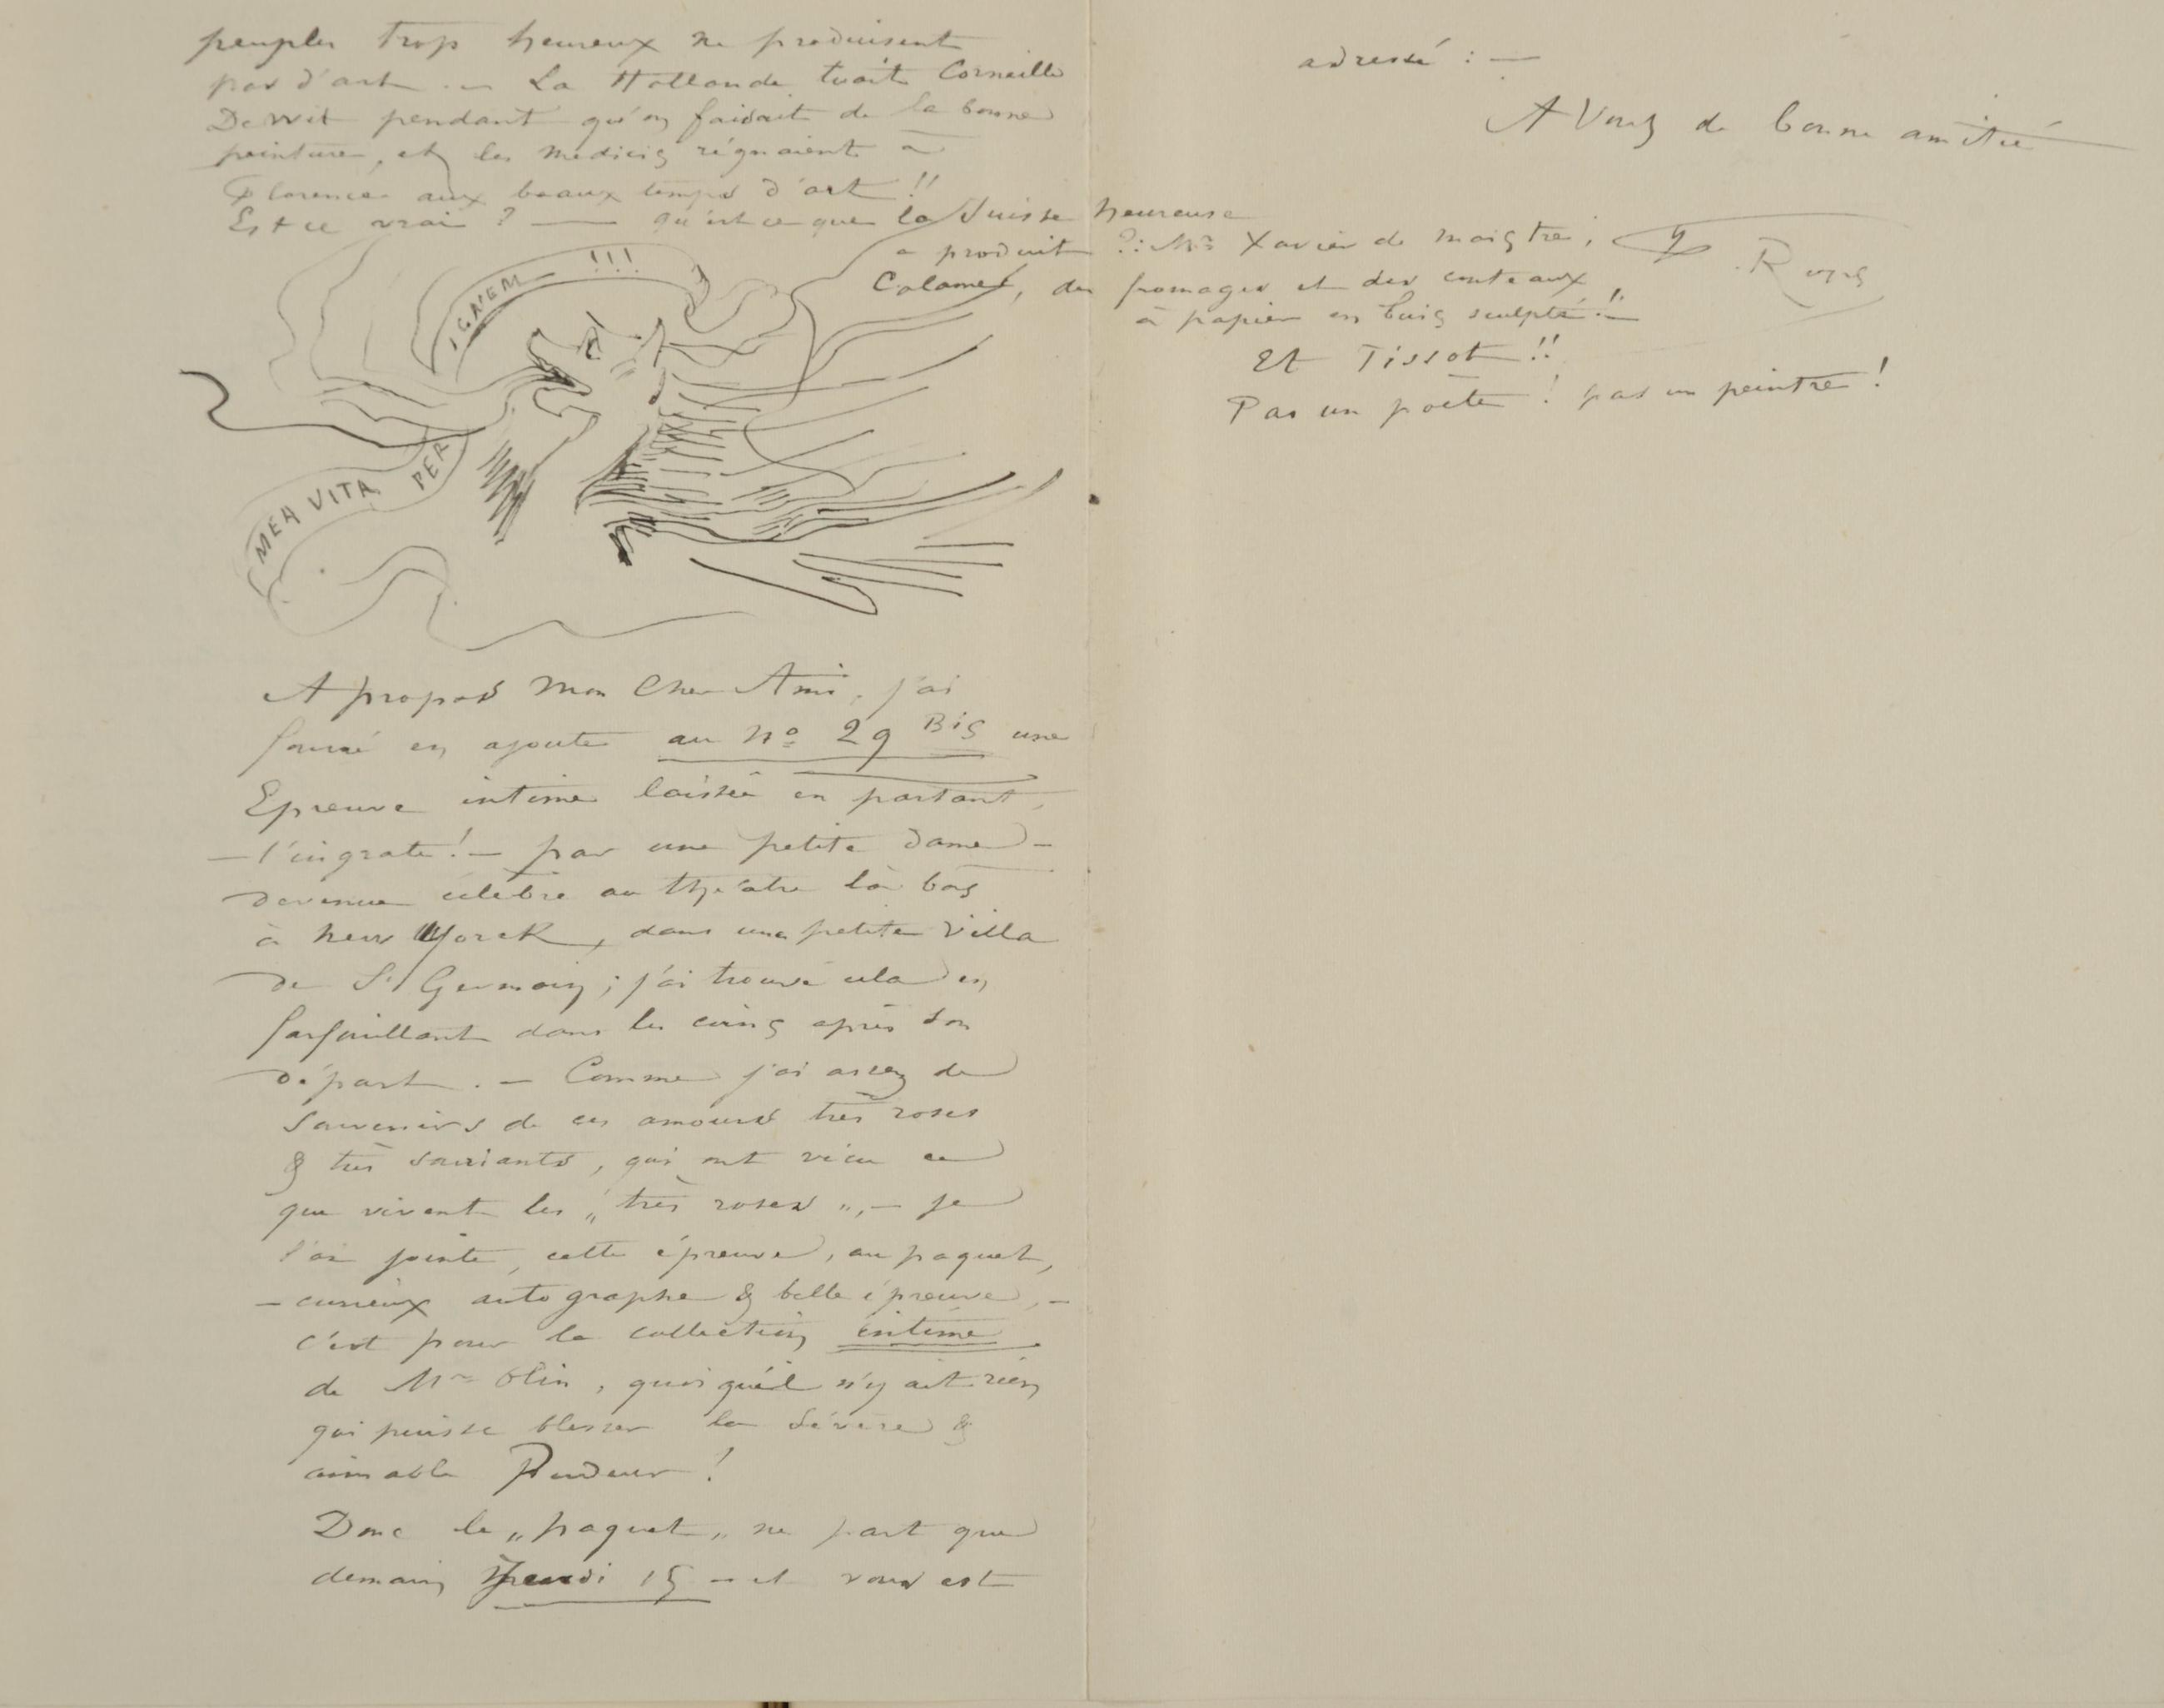 peuples trop heureux ne produisent
pas d'art. — La Hollande tuait Corneille
De Wit pendant qu'on faisait de la bonne
peinture, et les Medicis régnaient à
Florence aux beaux temps d'art !!
Est ce vrai ? — qu'est ce que la Suisse heureuse
a produit ?: Mr Xavier de Maistre,
Calamet, des fromages et des couteaux
à papier en buis sculpté !! —
Et Tissot !!
Pas un poète ! pas un peintre !
MEA VITA PER
IGNEM !!!
A propos Mon Cher Ami, j'ai
fourré en ajoute au No 29 Bis une
Epreuve intime laissée en partant,
— l'ingrate ! — par une petite dame —
devenue célèbre au théâtre là bas
à New Yorck, dans une petite villa
de St Germain ; j'ai trouvé cela en
farfouillant dans les coins après son
départ. — Comme j'ai assez de
souvenirs de ces amours très roses
& très souriants, qui ont vécu ce
que vivent les „très roses", — je
l'ai jointe, cette épreuve, au paquet,
— curieux autographe & belle épreuve, —
c'est pour la collection intime
de Mr Olin, quoiqu'il n'y ait rien
qui puisse blesser la sévère &
aimable Pudeur !
Donc le „paquet" ne part que
demain Jeudi 15 — et vous est
adressé : —
A Vous de bonne amitié
F. Rops